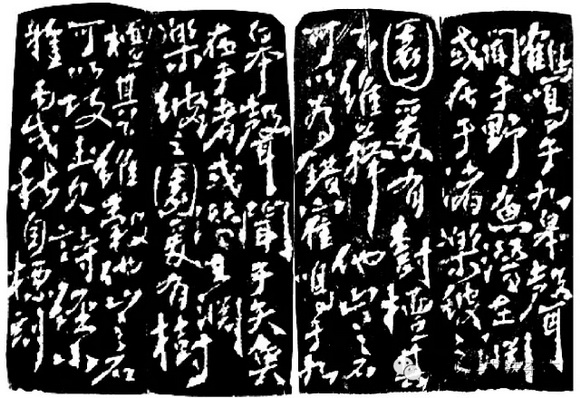 鶴鳴于九皋聲
聞于野魚潛在淵
或在于渚樂彼之
園爰有樹檀其
下維蘀他山之石
可以為錯隺鳴于九
皋聲聞于天魚
在于渚或潛在淵
樂彼之園爰有樹
檀其下維穀他山之石
可以攻玉詩經小
雅丙戌秋自標刻